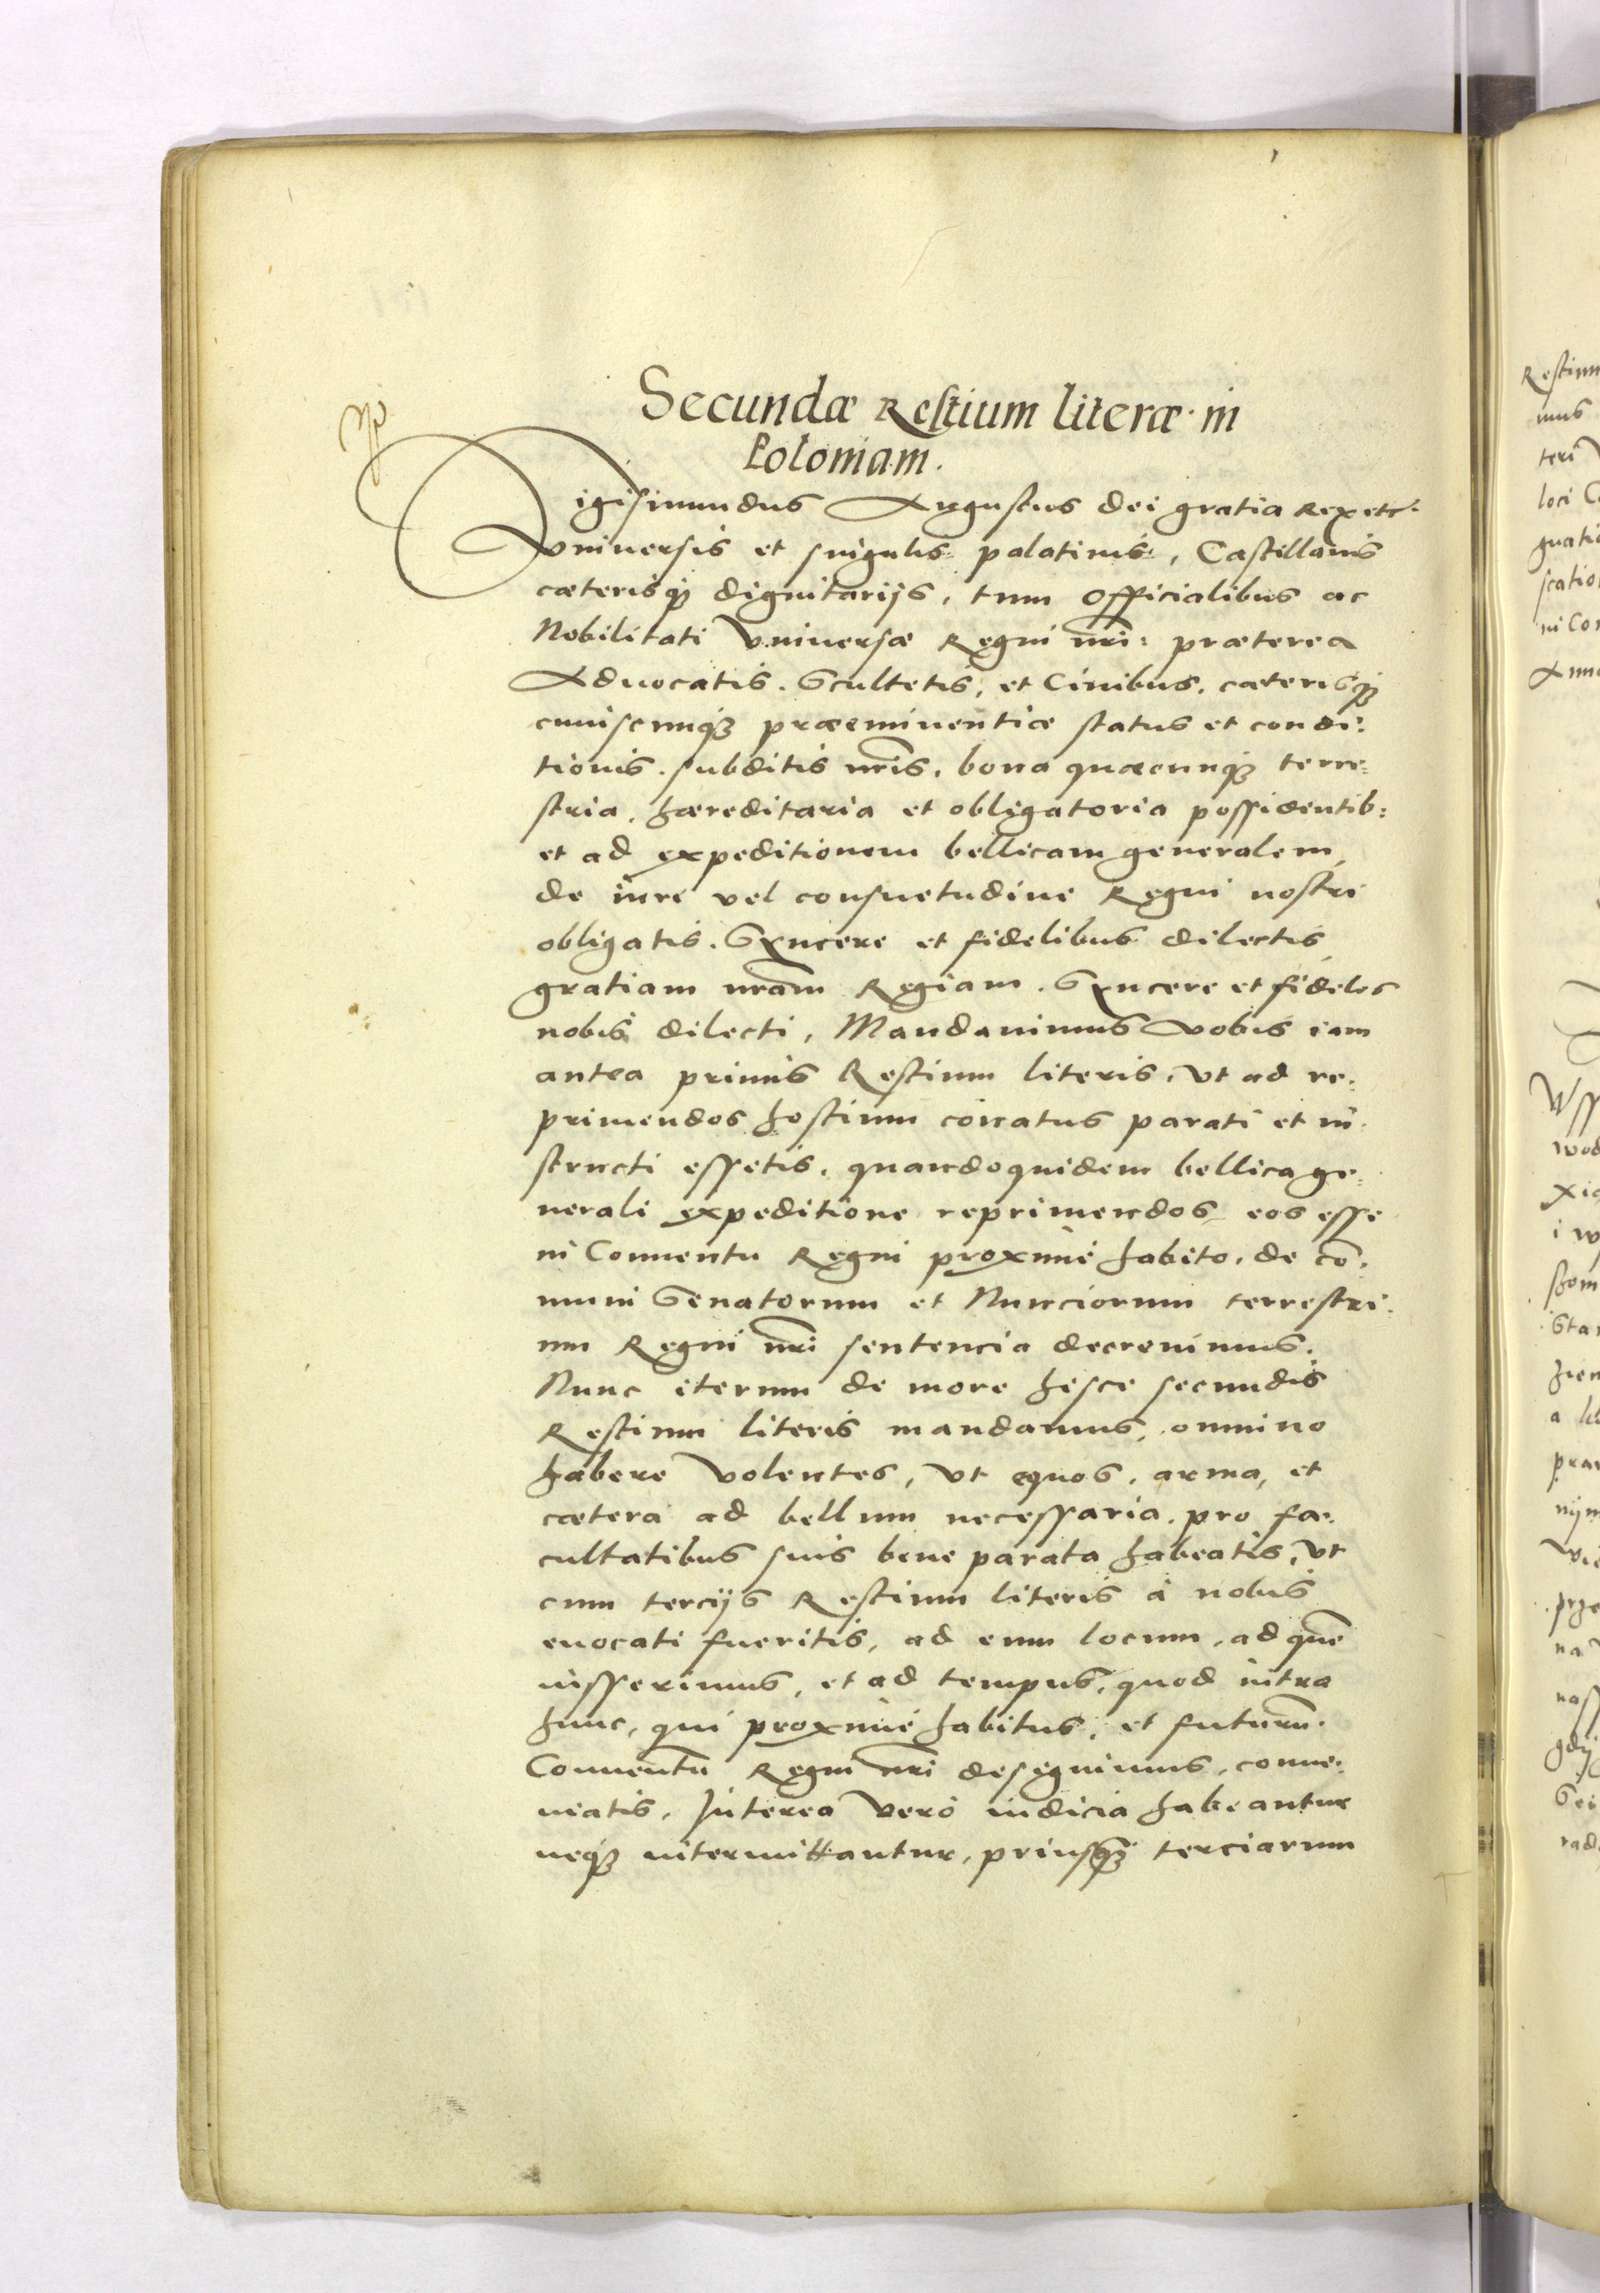 Secundæ Restium literæ in
Poloniam.
Sigismundus Augustus dei gratia Rex etc.
Vniuersis et singulis palatinis, Castellanis
cæterisq3 dignitarijs, tum Officialibus ac
Nobilitati Vniuersæ Regni nri: præterea
Aduocatis. Scultetis, et Ciuibus, cæterisq3
cuiuscunq3 præeminentiæ status et condi:
tionis. subditis nris, bona quæcunq3 terre:
stria, hæreditaria et obligatoria possidentib:
et ad expeditionem bellicam generalem
de iure vel consuetudine Regni nostri
obligatis. Syncere et fidelibus dilectis
gratiam nram Regiam. Syncere et fideles
nobis dilecti, Mandauimus vobis iam
antea primis Restium literis, vt ad re:
primendos hostium conatus parati et in:
structi essetis, quandoquidem bellica ge:
nerali expeditione reprimendos eos esse
in Conuentu Regni proximè habito, de co:
muni Senatorum et Nunciorum terrestri:
um Regni nri sentencia decreuimus.
Nunc iterum de more hisce secundis
Restium literis mandamus, omnino
habere volentes, vt equos, arma, et
cætera ad bellum necessaria, pro fa:
cultatibus suis bene parata habeatis, vt
cum tercijs Restium literis à nobis
euocati fueritis, ad eum locum, ad quem
iusserimus, et ad tempus, quod intra
hunc, qui proximè habitus, et futurum
Conuentum Regni nri designimus, conue:
niatis, Interea verò iudicia habeantur
neq3 intermittantur, priusq3 terciarum